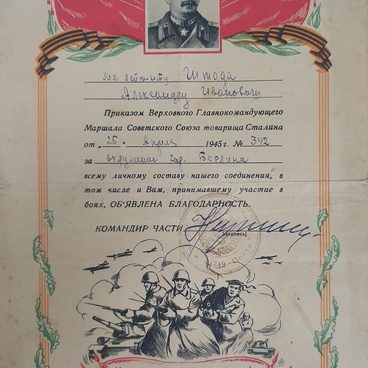 мл. лейт-нту Штода
Александру Ивановичу
Приказом Верховного Главнокомандующего
Маршала Советского Союза товарища Сталина
от "25" Апреля 1945 г. № 342
за окружение гор. Берлина
всему личному составу нашего соединения, в
том числе и Вам, принимавшему участие в
боях, ОБ'ЯВЛЕНА БЛАГОДАРНОСТЬ.
КОМАНДИР ЧАСТИ
(подпись)